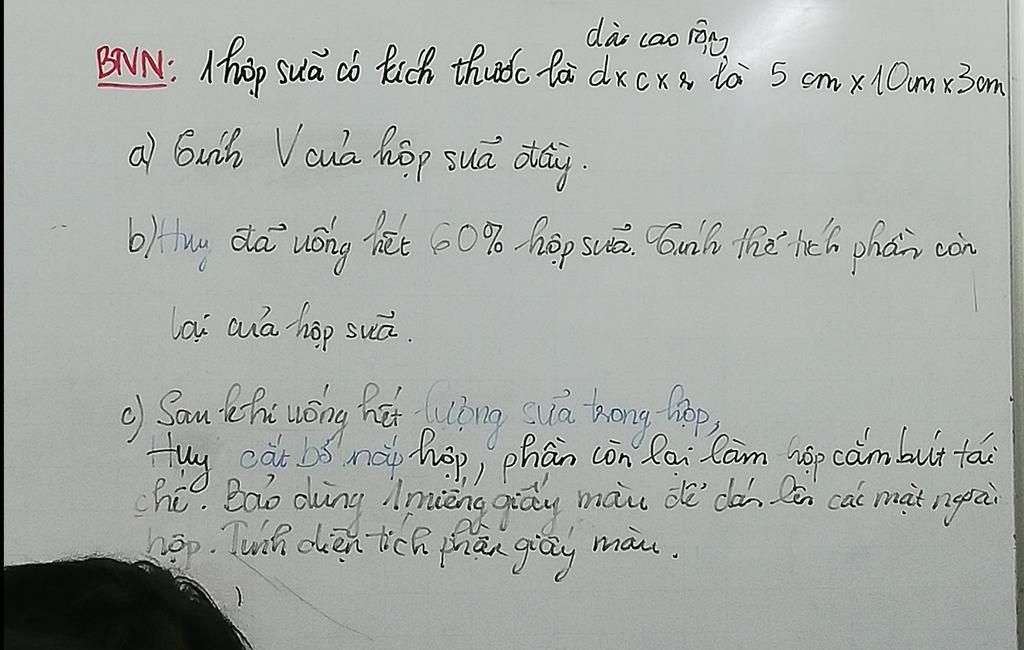 dài cao rộng
BNN: 1 hộp sữa có kích thước là d x c x r là 5 cm x 10 cm x 3 cm
a) Tính V của hộp sữa đầy.
b) Huy đã uống hết 60% hộp sữa. Tính thể tích phần còn
lại của hộp sữa.
c) Sau khi uống hết lượng sữa trong hộp,
Huy cắt bỏ nắp hộp, phần còn lại làm hộp cắm bút tái
chế. Bảo dùng 1 miếng giấy màu để dán lên các mặt ngoài
hộp. Tính diện tích phần giấy màu.